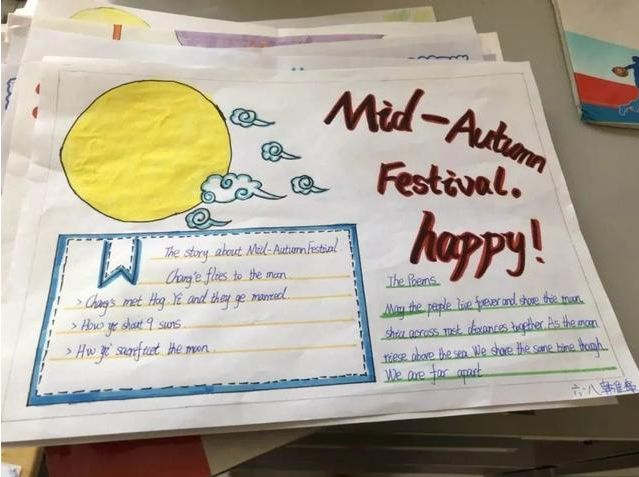 Mid-Autumn
Festival.
happy!
The story about Mid-Autumn Festival
Chang'e flies to the moon
> Chang's met Hog Yi and they ge married
> How ye shoot 9 suns
> Hw ye sacrificet the moon
The Poems
May the people live forever and share this moon
shria across rost distances together. As the moon
riese above the sea We share the same time though
We are far apart
六·八